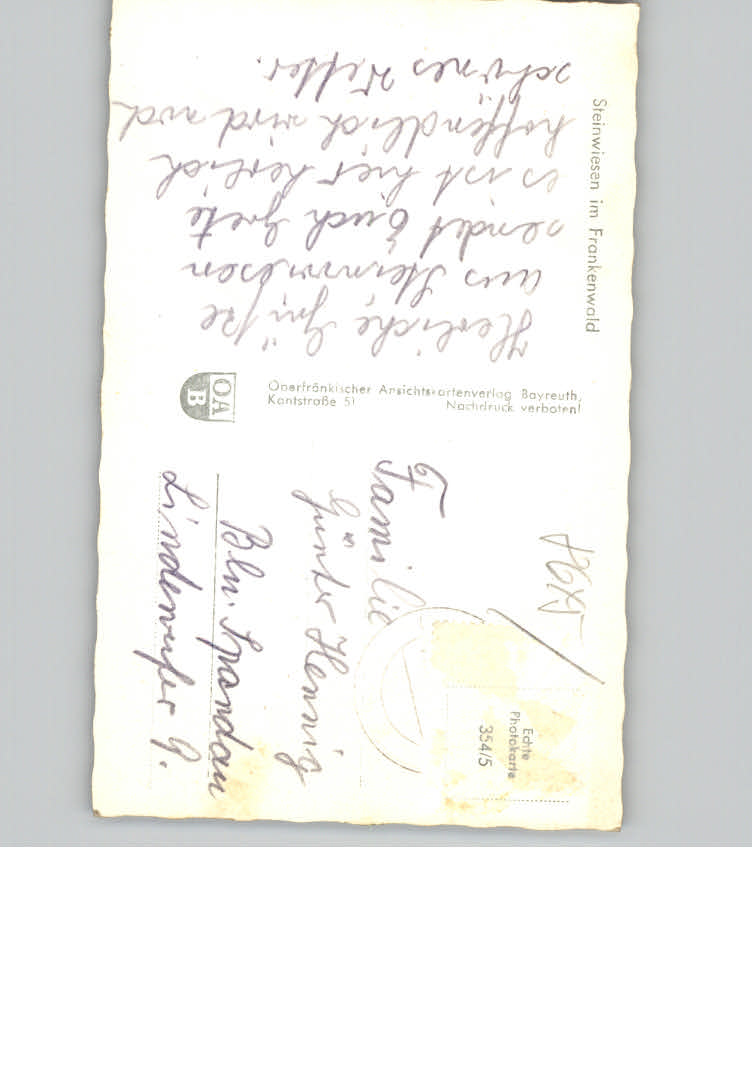 Steinwiesen im Frankenwald
Herliche Grüße
aus Steinwiesen
sendet Euch Grete
es ist hier herlich
hoffendlich wird noch
schönes Wetter.
OA
B
Oberfränkischer Ansichtskartenverlag Bayreuth,
Kantstraße 51 Nachdruck verboten!
Echte
Photokarte
354/5
Familie
Günter Hennig
Bln. Spandau
Lindenufer 9.